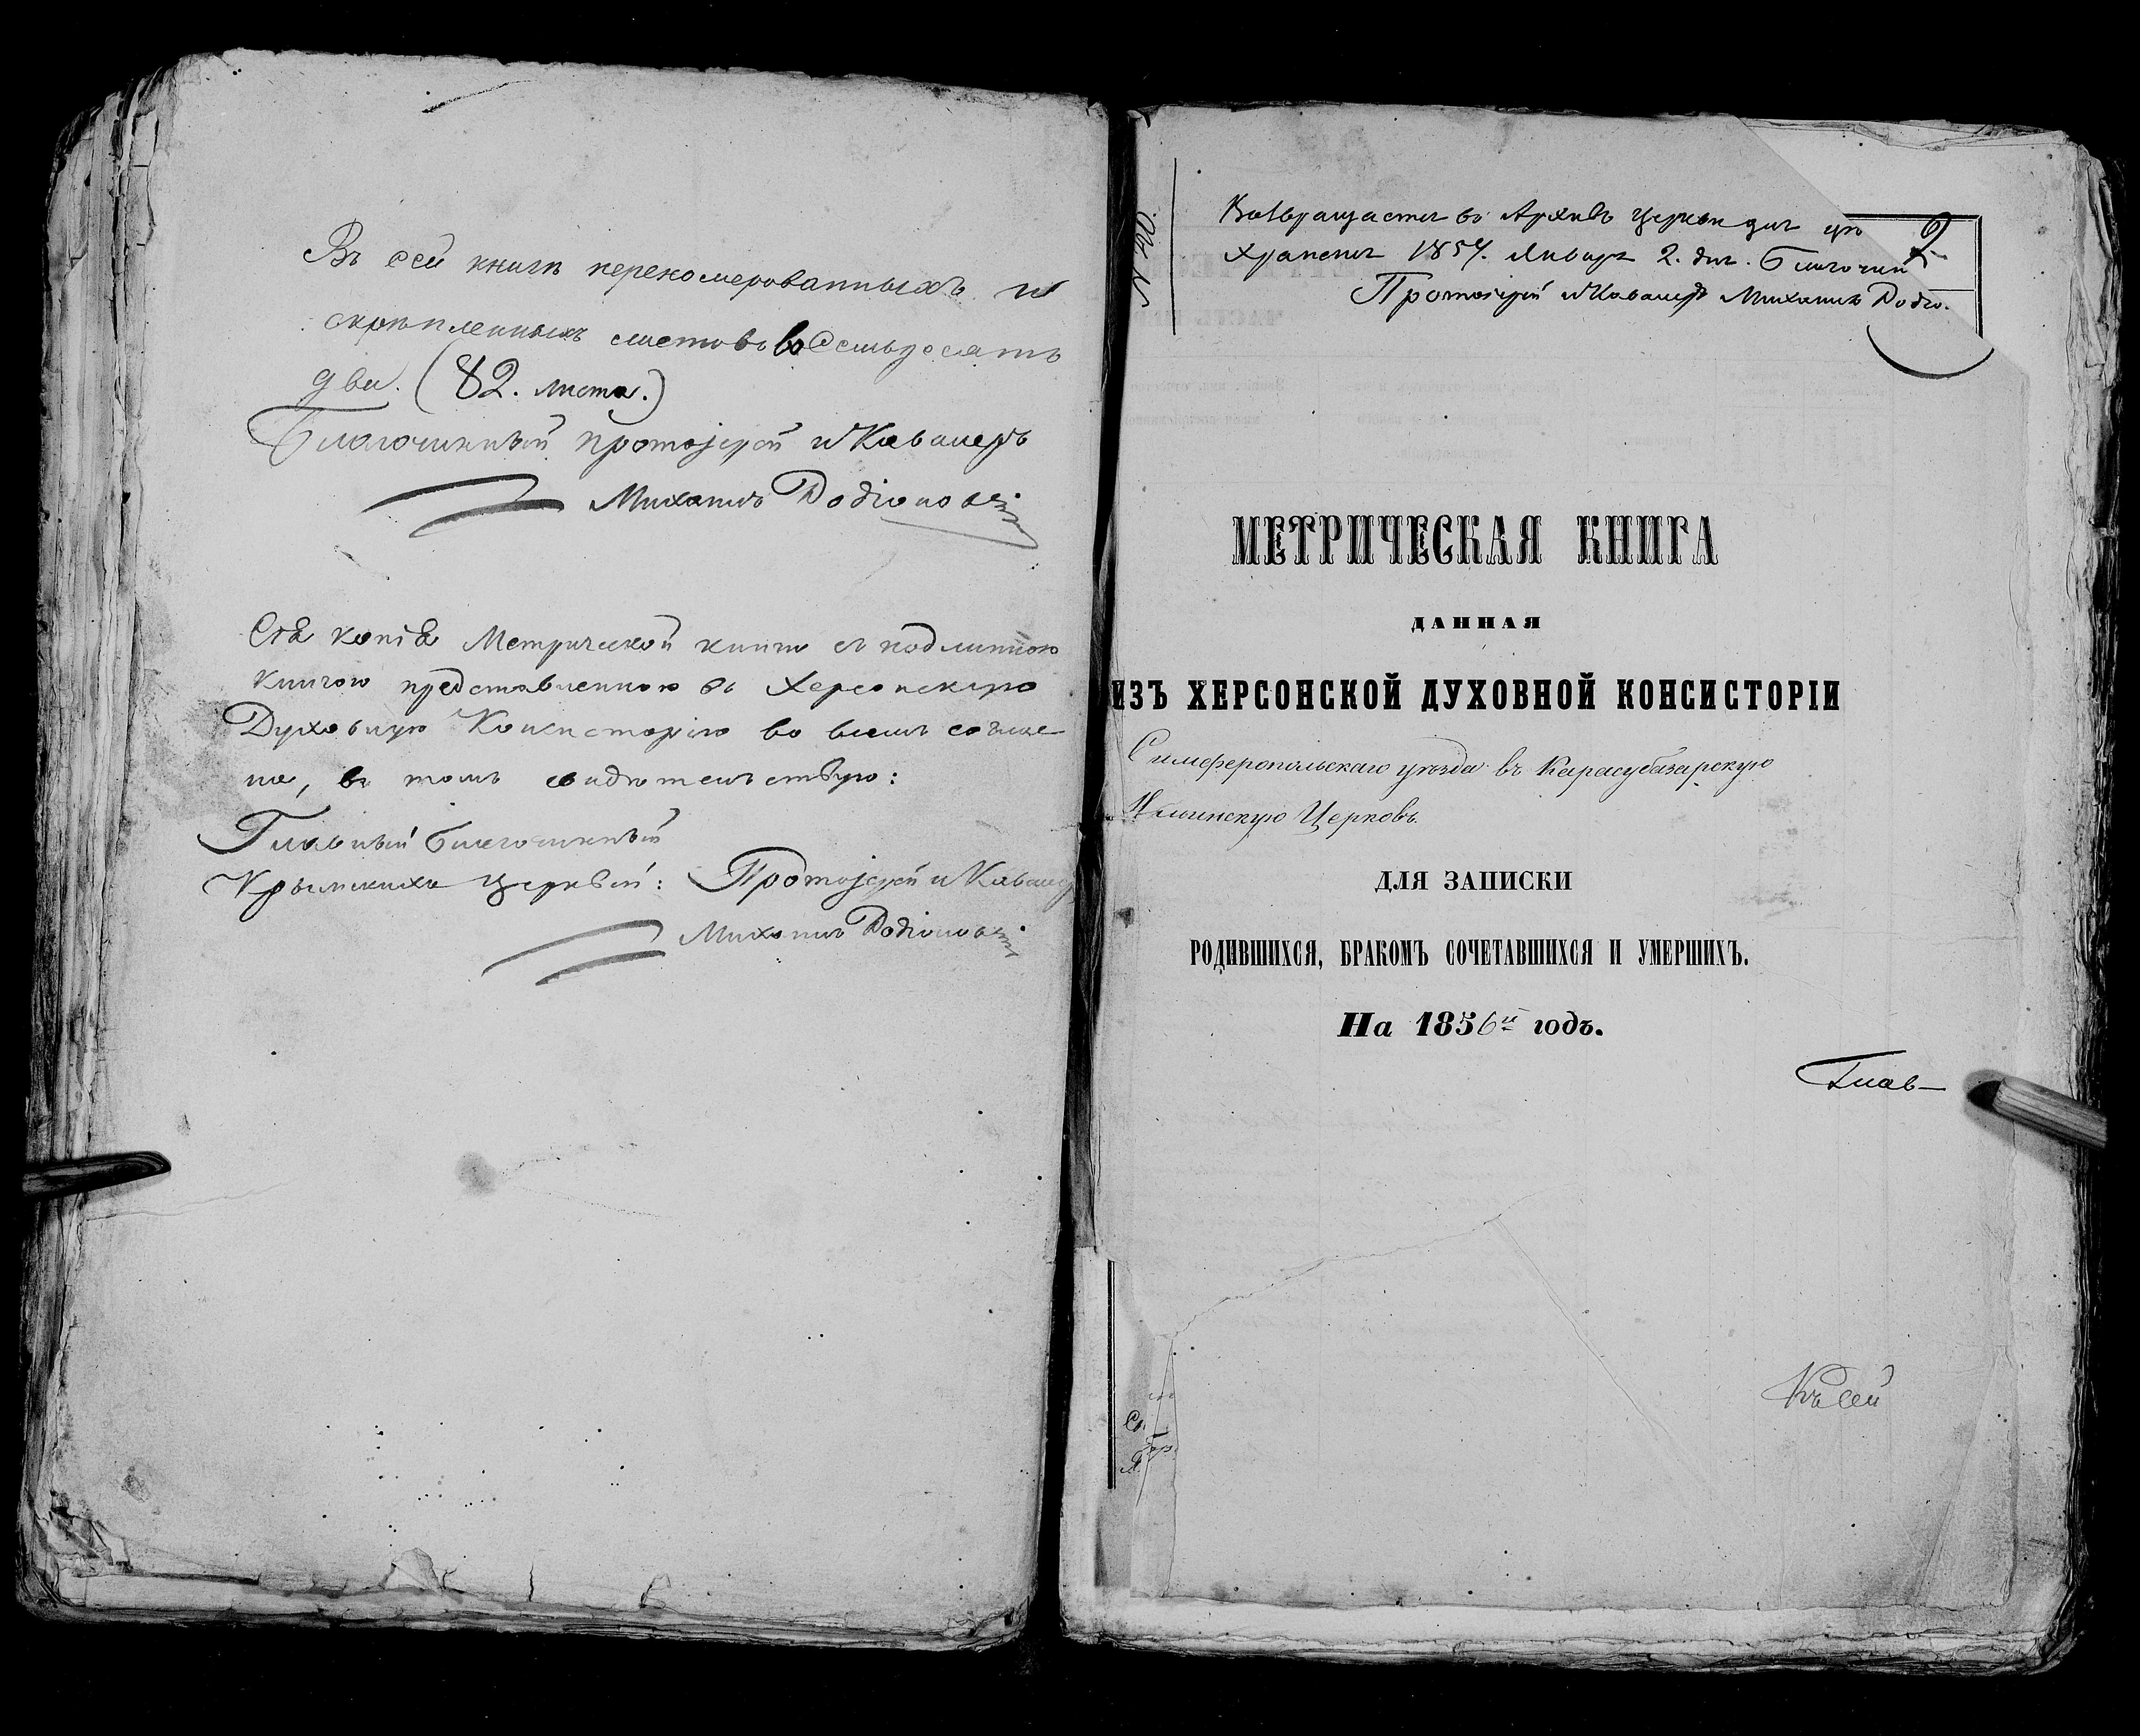 Въ сей книгѣ перекомерованныхъ и
скрѣпленныхъ листовъ восемьдесятъ
два. (82. листа.)
Благочинный протоіерей и Кавалеръ
Михаилъ Родіоновъ
Сія копія Метрической книги съ подлинною
книгою представленною въ Херсонскую
Духовную Консисторію во всемъ соглас
на, въ томъ свидѣтельствую:
Главный благочинный
Крымскихъ церквей: Протоіерей и Кавалер
Михаилъ Родіоновъ
Возвращается въ Архивъ церкви для
храненія 1857. Января 2. дня. Благочин
Протоіерей и Кавалеръ Михаилъ Родіо.
2
МЕТРИЧЕСКАЯ КНИГА
ДАННАЯ
ИЗЪ ХЕРСОНСКОЙ ДУХОВНОЙ КОНСИСТОРІИ
Симферопольскаго уѣзда въ Карасубазарскую
Церковь.
ДЛЯ ЗАПИСКИ
РОДИВШИХСЯ, БРАКОМЪ СОЧЕТАВШИХСЯ И УМЕРШИХЪ.
На 1856й годъ.
Глав-
Къ сей